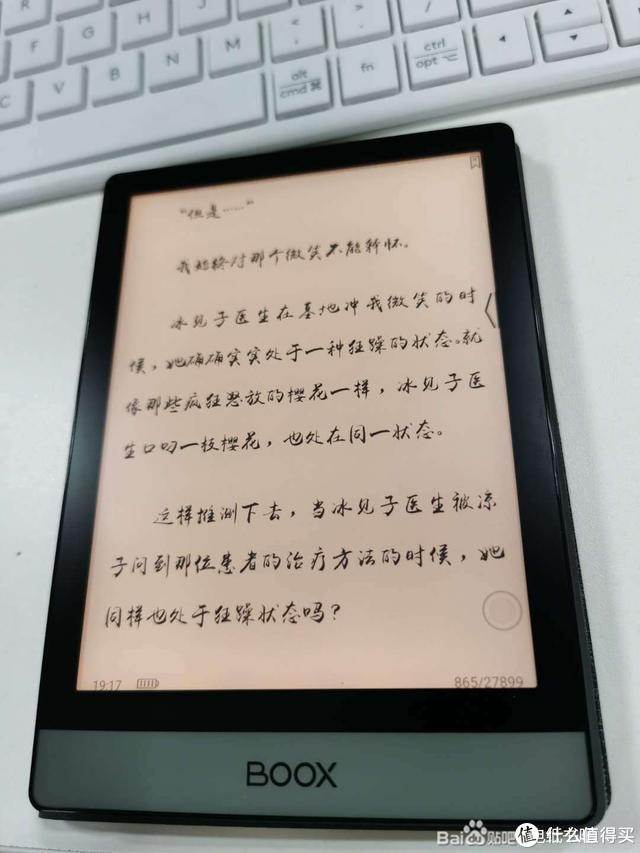 R
F
G
H
J
K
L
C
V
B
N
M
<
,
>
.
?
/
alt
cmd ⌘
fn
ctrl
opt ⌥
“但是……”
我始终对那个微笑不能释怀。
冰见子医生在基地冲我微笑的时
候，她确确实实处于一种狂躁的状态。就
像那些疯狂怒放的樱花一样，冰见子医
生口吻一枝樱花，也处在同一状态。
这样推测下去，当冰见子医生被凉
子问到那位患者的治疗方法的时候，她
同样也处于狂躁状态吗？
19:17
865/27899
BOOX
Bai 贴吧
值 什么值得买